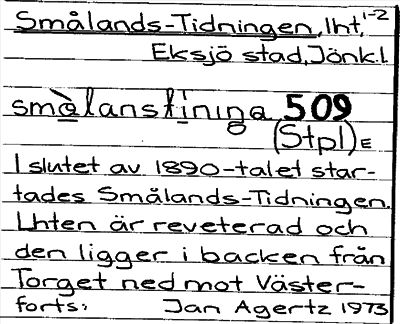 Smålands-Tidningen, lht, 1-2
Eksjö stad, Jönk.l.
smòlanstìniŋa 509
(Stpl) E
I slutet av 1890-talet star-
tades Smålands-Tidningen.
Lhten är reveterad och
den ligger i backen från
Torget ned mot Väster-
forts: Jan Agertz 1973